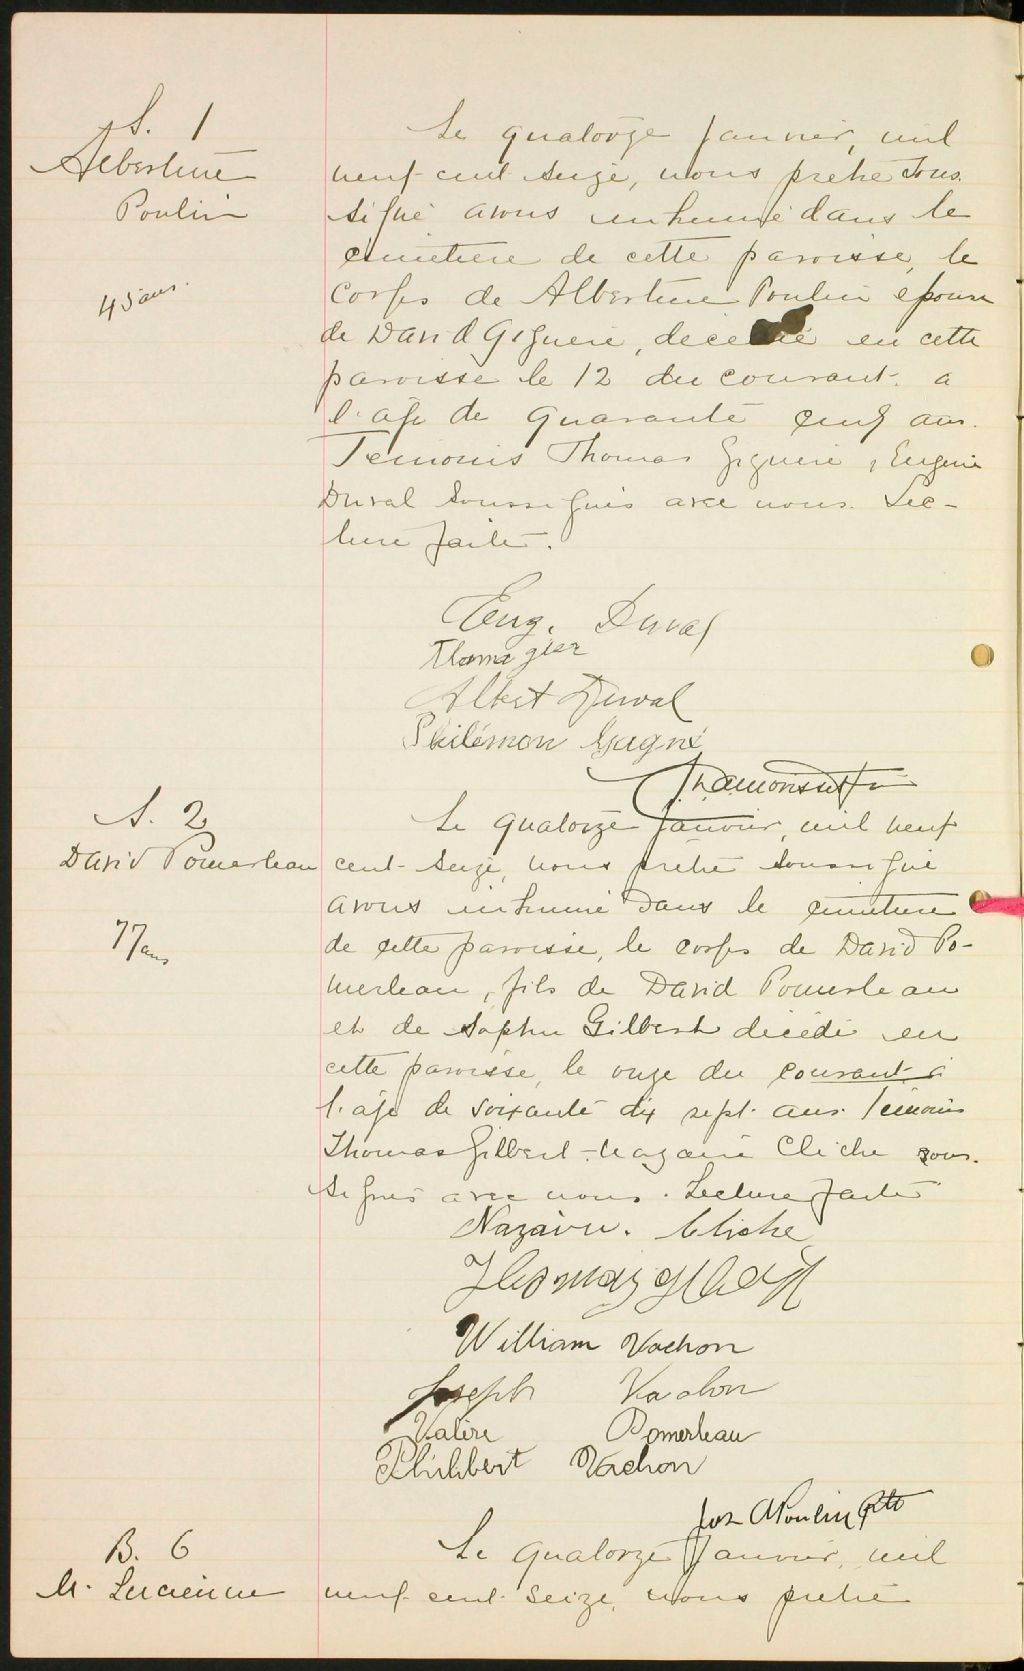 S. 1
Albertine
Poulin
45 ans.
Le quatorze janvier, mil
neuf cent seize, nous prêtre sous
signé avons inhumé dans le
cimetière de cette paroisse, le
corps de Albertine Poulin épouse
de David Giguère, décédée en cette
paroisse le 12 du courant. a
l'age de quarante cinq ans.
Temoins Thomas Giguère, Eugène
Duval soussignés avec nous. Lec-
ture faite.
Eug. Duval
Thoma
Albert Duval
Philémon Gagné
S. 2
David Pomerleau
77 ans
Le quatorze janvier, mil neuf
cent seize, nous prêtre soussigné
avons inhumé dans le cimetière
de cette paroisse, le corps de David Po-
merleau, fils de David Pomerleau
et de Sophie Gilbert décédé en
cette paroisse, le onze du courant à
l'age de soixante dix sept ans. Temoins
Thomas Gilbert - Nazaire Cliche sous.
signés avec nous. Lecture faite
Nazaire. Cliche
Thomas Gilbert
William Vachon
Joseph Vachon
Valère Pomerleau
Philibert Vachon
Jos A Poulin Ptr
B. 6
M. Lucienne
Le quatorze janvier, mil
neuf cent seize, nous prêtre